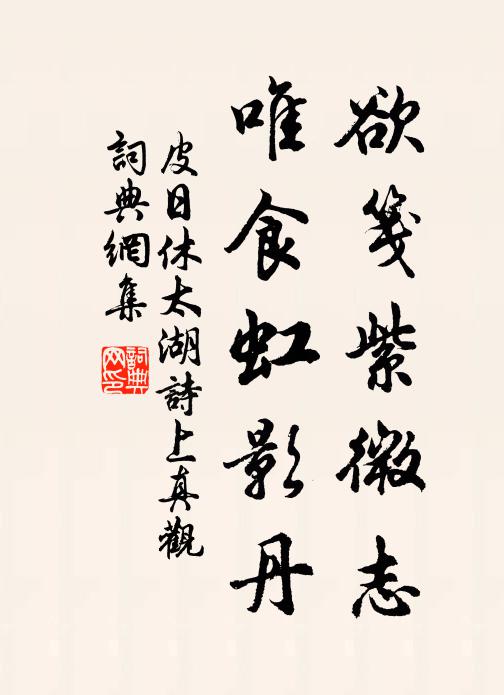 欲箋紫微志
唯食虹影丹
皮日休太湖詩上真觀
詞典網集
詞典網印